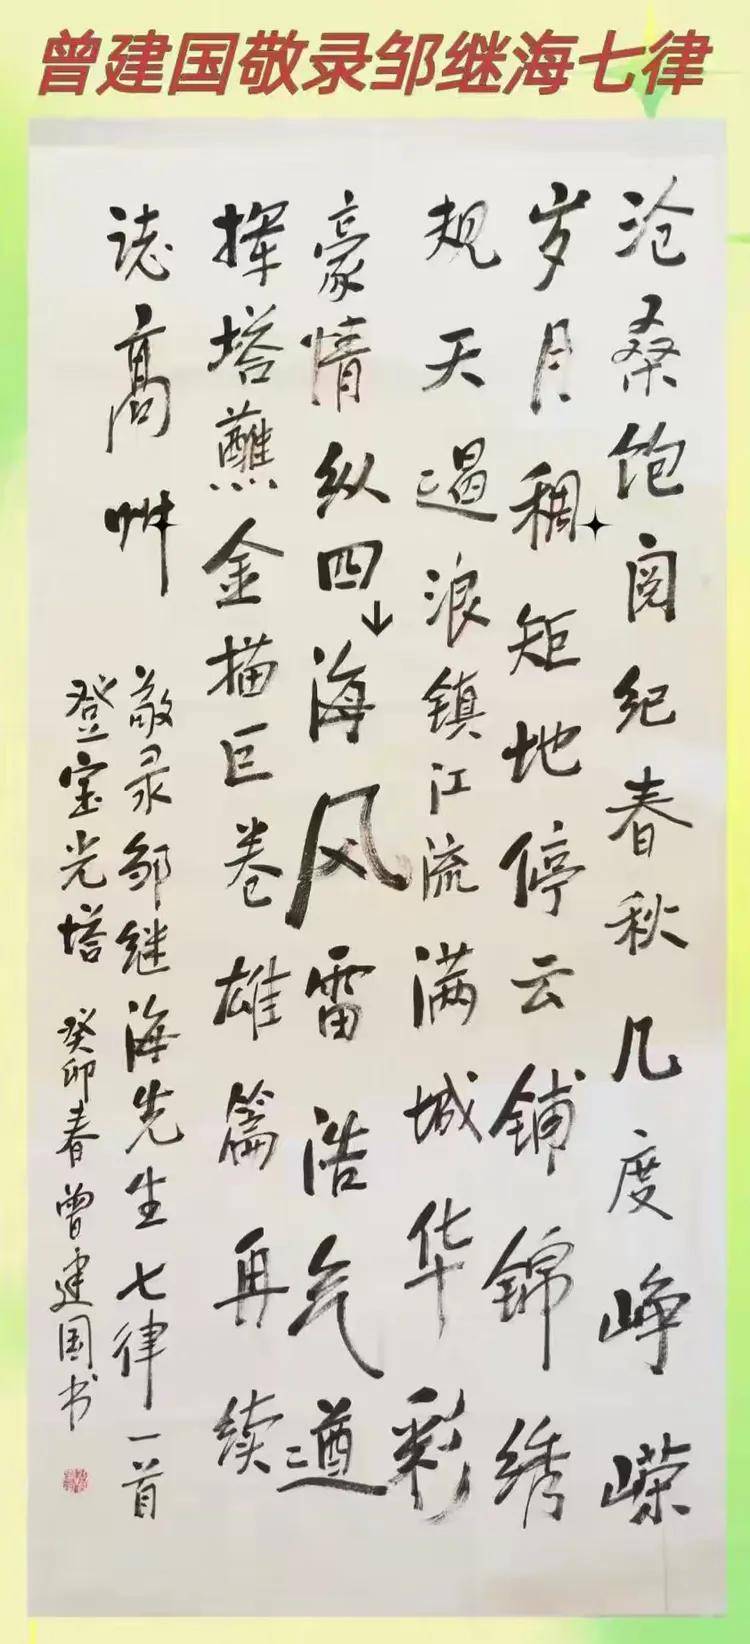 曾建国敬录邹继海七律
沧桑饱阅纪春秋几度峥嵘
岁月稠矩地停云铺锦绣
规天遏浪镇江流满城华彩
豪情纵四海风雷浩气遒
挥塔蘸金描巨卷雄篇再续
誌高艸
敬录邹继海先生七律一首
登宝光塔 癸卯春曾建国书